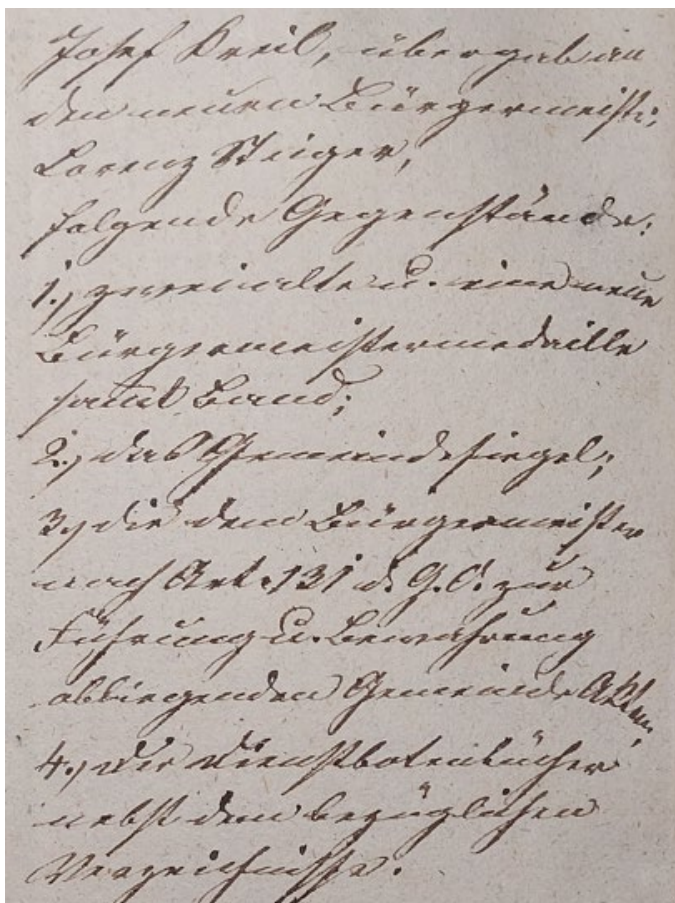 Josef Kreil, übergab an
den neuen Bürgermeister,
Lorenz Steiger,
folgende Gegenstände:
1., zwei alte u. eine neue
Bürgermeistermedaille
samt Band;
2., das Gemeindesiegel;
3., die dem Bürgermeister
nach Art. 131 d. G.O. zur
Führung u. Bewahrung
obliegenden Gemeinde Akten;
4., die Dienstbotenbücher
nebst dem bezüglichen
Verzeichnisse.